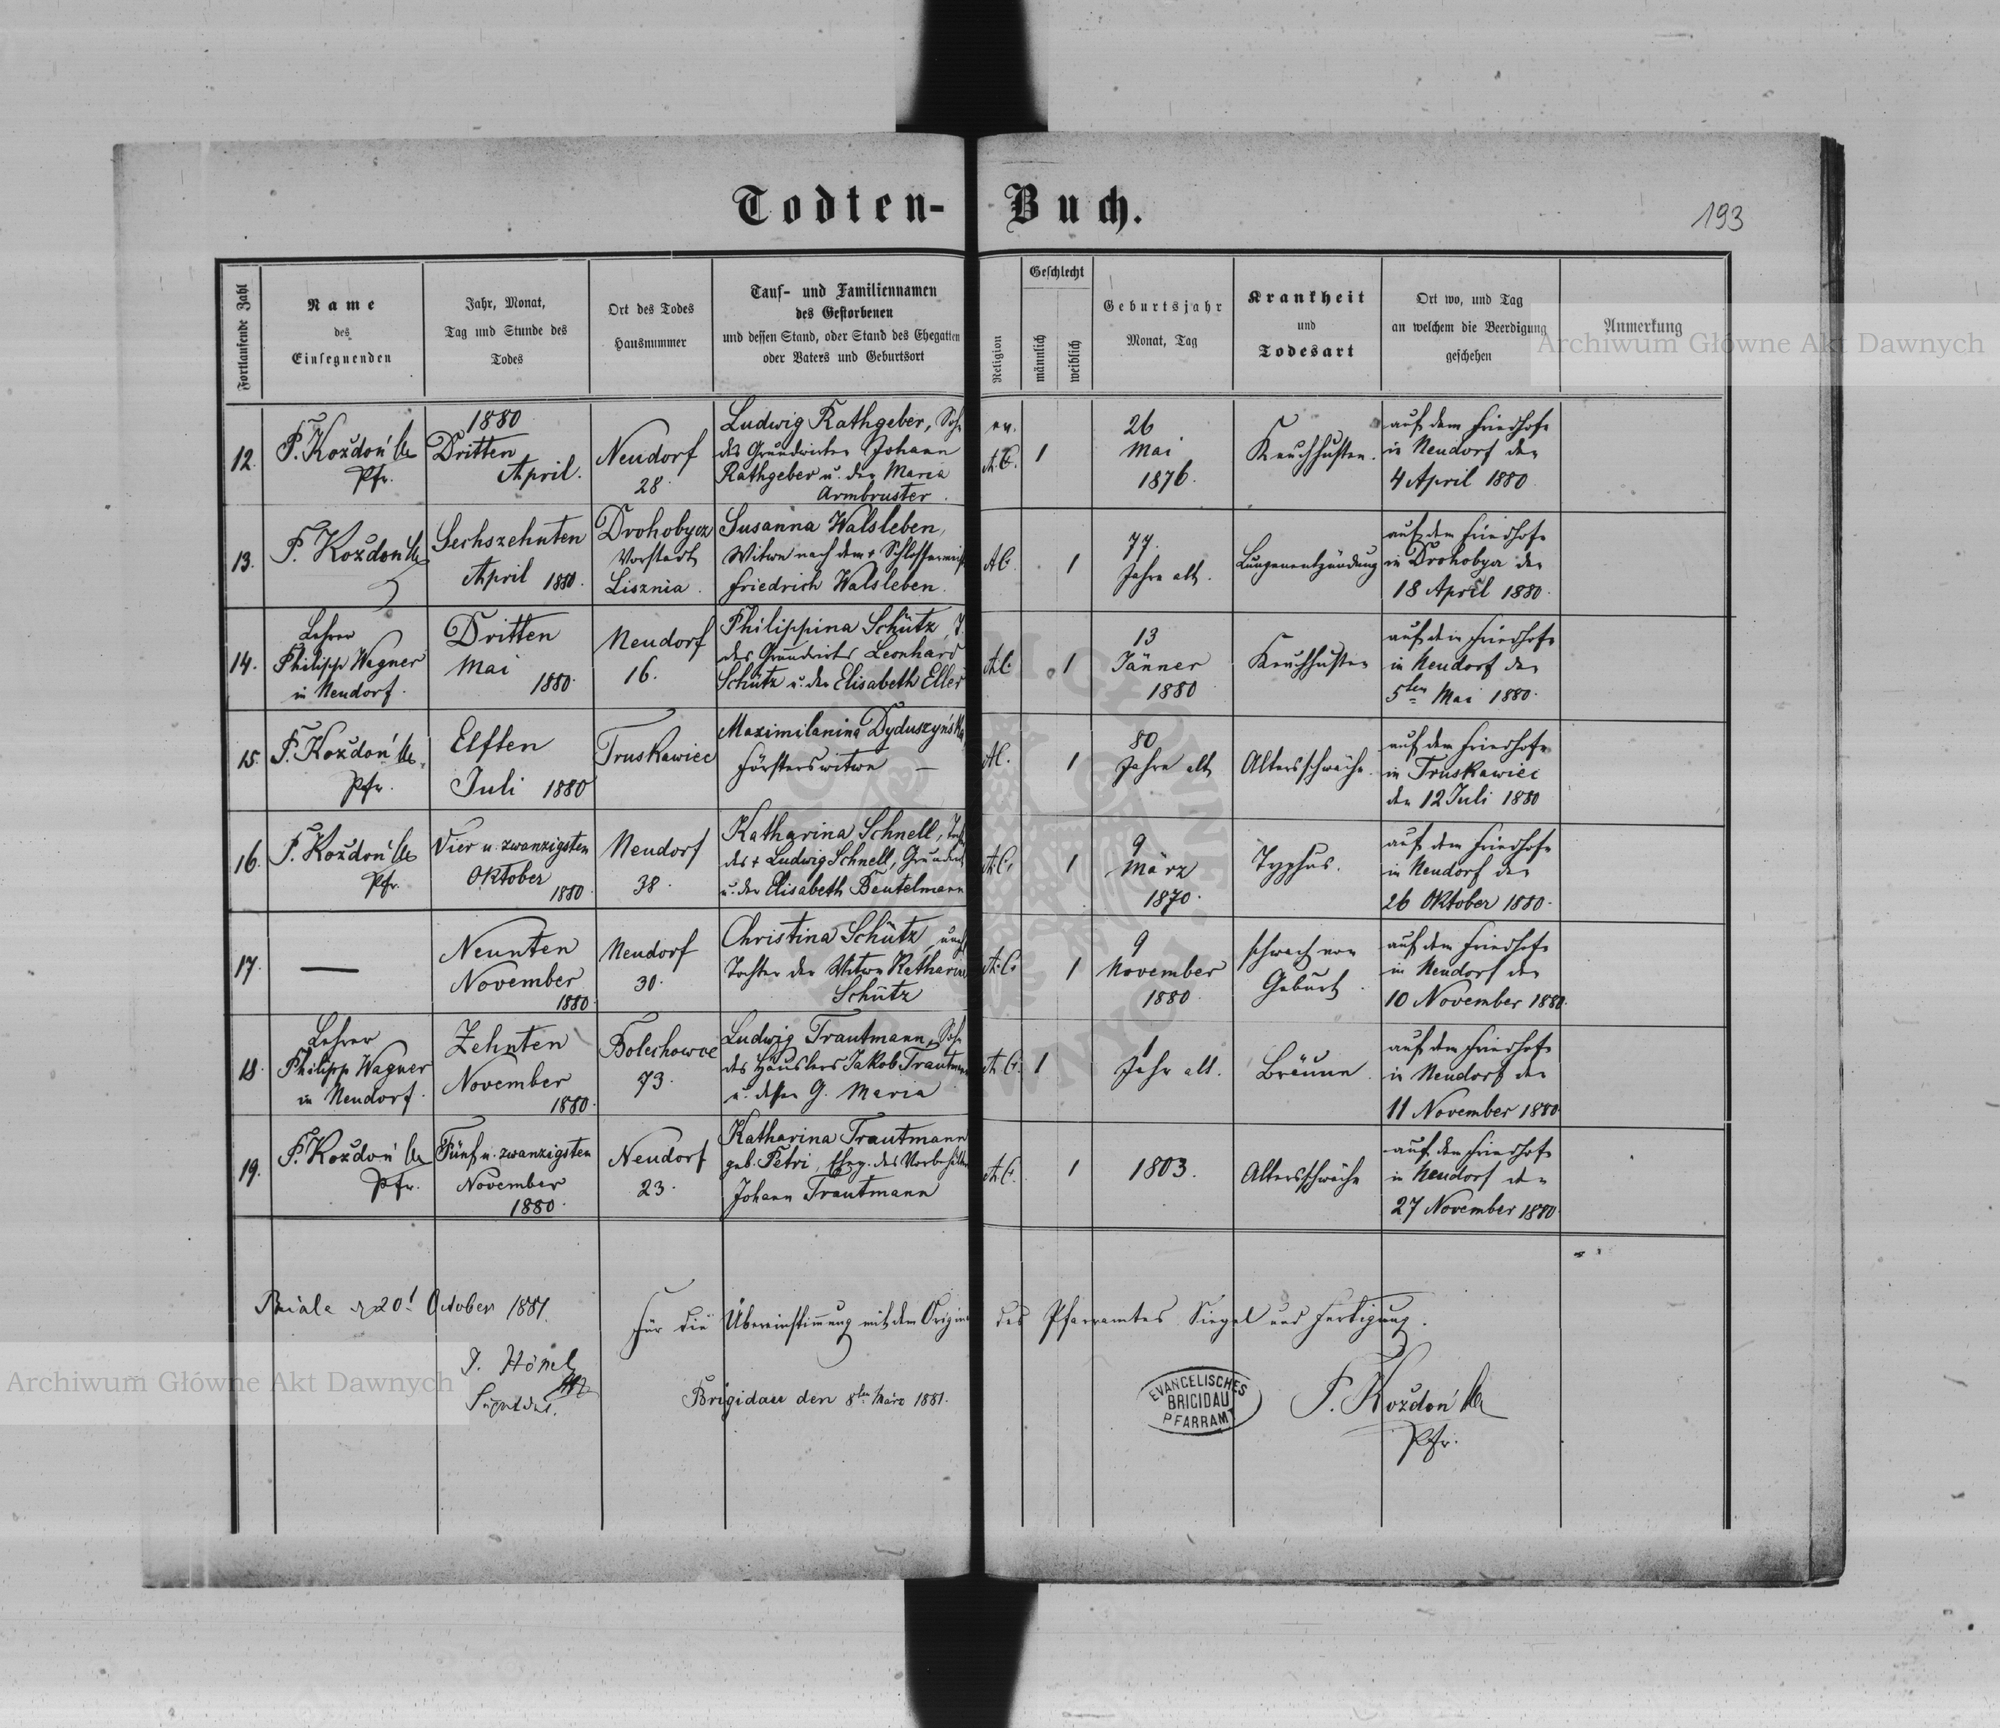 Todten-Buch.
193
Fortlaufende Zahl
Name
des
Einsegnenden
Jahr, Monat,
Tag und Stunde des
Todes
Ort des Todes
Hausnummer
Tauf- und Familiennamen
des Gestorbenen
und dessen Stand, oder Stand des Ehegatten
oder Vaters und Geburtsort
Religion
Geschlecht
männlich
weiblich
Geburtsjahr
Monat, Tag
Krankheit
und
Todesart
Ort wo, und Tag
an welchem die Beerdigung
geschehen
Anmerkung
Archiwum Główne Akt Dawnych
12.
F. Kozdoń
Pfr.
1880
Dritten
April.
Neudorf
28.
Ludwig Rathgeber, Soh
des Grundwirten Johann
Rathgeber u. der Maria
Armbruster.
ev.
A.C.
1
26
Mai
1876.
Keuchhusten.
auf dem Friedhofe
in Neudorf den
4 April 1880
13.
F. Kozdoń
Sechszehnten
April 1880.
Drohobycz
Vorstadt
Lisznia.
Susanna Walsleben,
Witwe nach dem + Schlossermeist
Friedrich Walsleben.
A.C.
1
77.
Jahre alt.
Lungenentzündung
auf dem Friedhofe
in Drohobycz den
18 April 1880.
14.
Lehrer
Philipp Wagner
in Neudorf.
Dritten
Mai
1880.
Neudorf
16.
Philippina Schütz, T.
des Grundwirts Leonhard
Schütz u. der Elisabeth Eller
A.C.
1
13
Jänner
1880
Keuchhusten
auf dem Friedhofe
in Neudorf den
5ten Mai 1880.
15.
F. Kozdoń
Pfr.
Elften
Juli 1880
Truskawiec
Maximilanina Dyduszyńska
Försterswitwe —
A.C.
1
80
Jahre alt
Altersschwäche.
auf dem Friedhofe
in Truskawiec
den 12 Juli 1880
16.
F. Kozdoń
Pfr.
Vier u. zwanzigsten
Oktober
1880.
Neudorf
38.
Katharina Schnell, Toch
des + Ludwig Schnell, Grundwir
u. der Elisabeth Beutelmann
A.C.
1
9
März
1870.
Typhus.
auf dem Friedhofe
in Neudorf den
26 Oktober 1880.
17.
—
Neunten
November
1880.
Neudorf
30.
Christina Schütz, uneh
Tochter der Witwe Katharina
Schütz
A.C.
1
9
November
1880.
schwach von
Geburt.
auf dem Friedhofe
in Neudorf den
10 November 1880.
18.
Lehrer
Philipp Wagner
in Neudorf.
Zehnten
November
1880.
Bolechowce
73.
Ludwig Trautmann, Soh
des Häuslers Jakob Trautmann
u. dessen G. Maria
A.C.
1
1
Jahr alt.
Bräune.
auf dem Friedhofe
in Neudorf den
11 November 1880.
19.
F. Kozdoń
Pfr.
Fünf u. zwanzigsten
November
1880.
Neudorf
23.
Katharina Trautmann
geb. Petri, Eheg. des Vorbehälter
Johann Trautmann
A.C.
1
1803.
Altersschwäche
auf dem Friedhofe
in Neudorf den
27 November 1880
Biala 20. October 1881.
Für die Übereinstimmung mit dem Original des Pfarramtes Siegel und Fertigung.
J. Hönel
Archiwum Główne Akt Dawnych
Brigidau den 8ten März 1881.
EVANGELISCHES
BRIGIDAU
PFARRAMT
F. Kozdoń
Pfr.